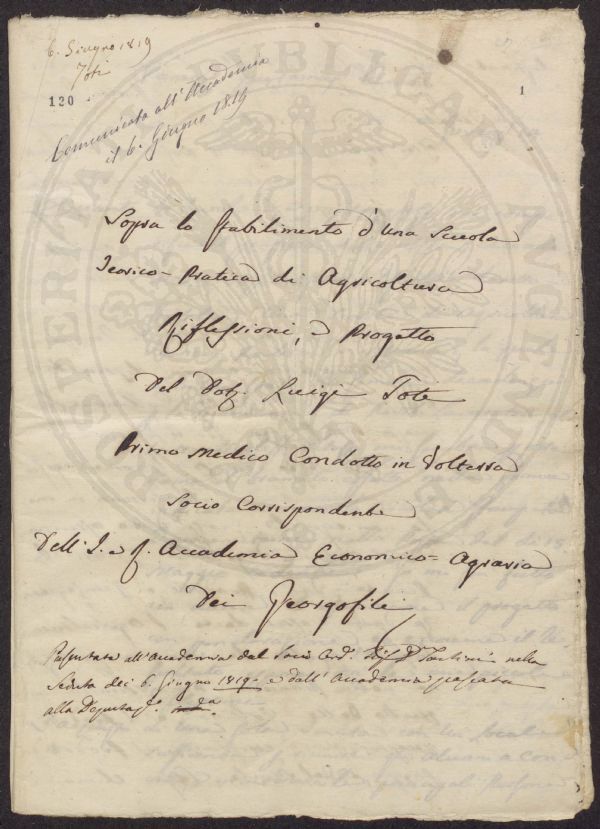 6. Giugno 1819
Toti
120
1
Comunicata all'Accademia
il 6. Giugno 1819
Sopra lo stabilimento d'una Scuola
Teorico=Pratica di Agricoltura
Riflessioni, e Progetto
Del Dott. Luigi Toti
Primo Medico Condotto in Volterra
Socio Corrispondente
Dell'I. e R. Accademia Economico=Agraria
Dei Georgofili
Presentata all'Accademia dal Socio Ord. Tartini nella
Seduta dei 6. Giugno 1819 e dall'Accademia passata
alla Deputaz.
PROSPERITATI PUBLICAE AUGENDAE